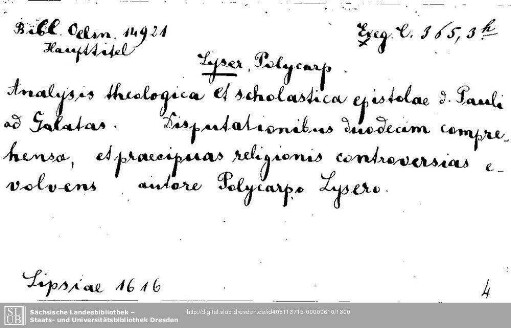 Bibl. Oelm. 14921
Haupttitel
Exeg. C. 365, 3h
Lyser, Polycarp.
Analysis theologica et scholastica epistolae d. Pauli
ad Galatas. Disputationibus duodecim compre-
hensa, et praecipuas religionis controversias e-
volvens autore Polycarpo Lysero.
Lipsiae 1616
4
Sächsische Landesbibliothek –
Staats- und Universitätsbibliothek Dresden